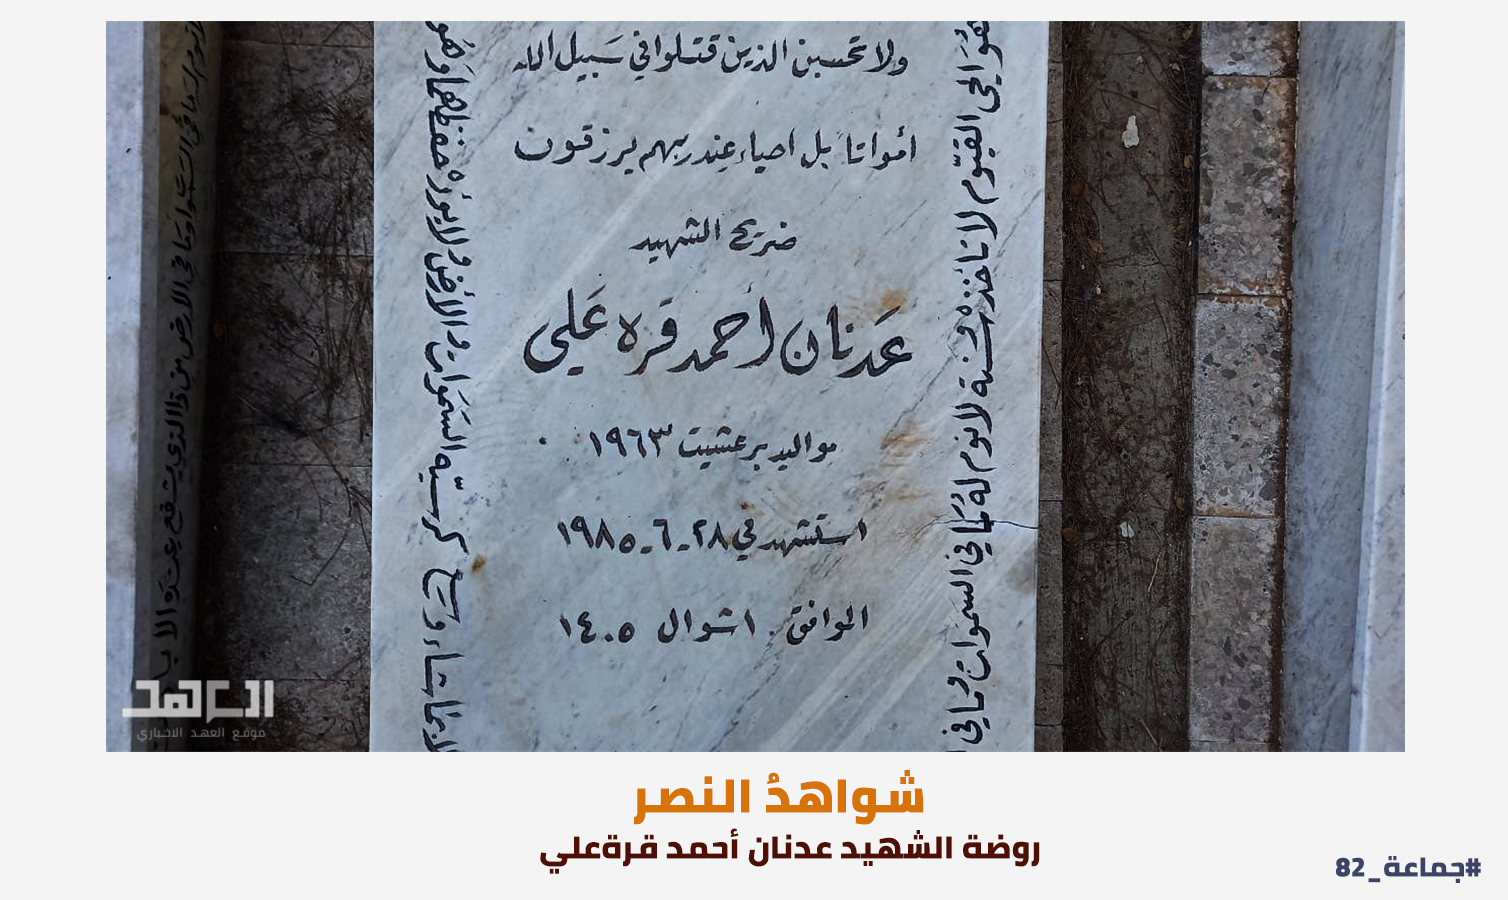 ولا تحسبن الذين قتلوا في سَبيل الله
أمواتا بل احياء عِند ربهم يرزقون
ضريح الشهيد
عَدنان أحمد قره عَلي
مواليد برعشيت ١٩٦٣
استشهد في ٢٨-٦-١٩٨٥
الوافق ١ شوال ١٤٠٥
هُوَ الحي القيّوم لا تاخذه سِنة لا نوم لهُ مَا في السموات وما في
ء وسع كرسيّه السَموات والأرض ولا يؤدهُ حفظهما وَهُو
العهد
موقع العهد الاخباري
شواهدُ النصر
روضة الشهيد عدنان أحمد قرةعلي
#جماعة_82